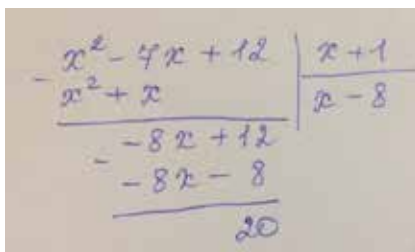 - x² - 7x + 12 | x + 1
x² + x | x - 8
- -8x + 12
-8x - 8
20